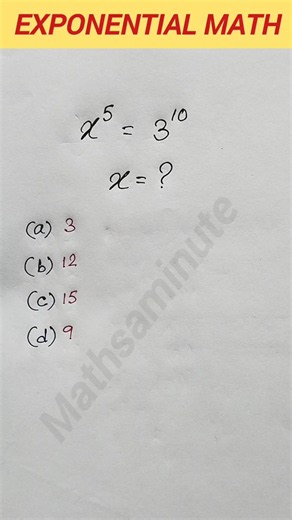 EXPONENTIAL MATH
x⁵ = 3¹⁰
x = ?
(a) 3
(b) 12
(c) 15
(d) 9
Mathsaminute